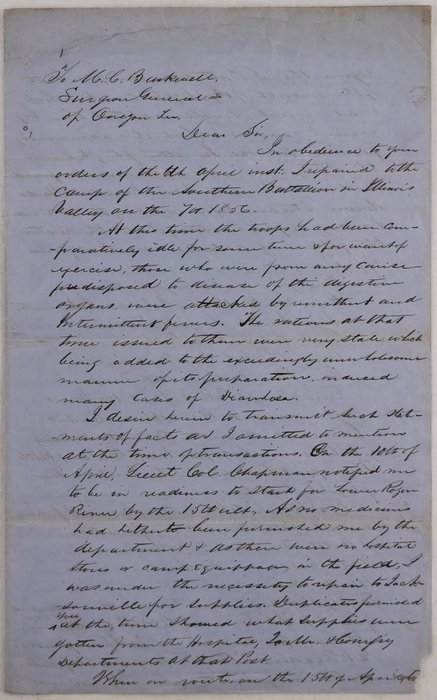 To M. C. Barkwell,
Surgeon General
of Oregon Ter.
Dear Sir,
In obedience to your
orders of the 6th April inst. I repaired to the
Camp of the Southern Battallion in Illinois
Valley on the 7th 1856.
At this time the troops had been com-
-paratively idle for some time & for want of
exercise, those who were from any cause
predisposed to disease of the digestive
organs were attacked by remittent and
Intermittent fevers. The rations at that
time issued to them were very stale, which
being added to the exceedingly unwholesome
manner of its preparation, induced
many cases of Diarrhoea.
I desire herein to transmit such state-
ments of facts as I omitted to mention
at the time of transactions. On the 10th of
April, Lieut Col. Chapman notified me
to be in readiness to start for Lower Rogue
River by the 15th ult. As no medicines
had hitherto been furnished me by the
department & as there were no hospital
stores or camp equippage in the field, I
was under the necessity to repair to Jack-
sonville for supplies. Duplicates furnished
you at the time showed what supplies were
gotten from the Hospital, Qr. Mr. & Comsy
Departments at that Post.
When on route, on the 15th of April